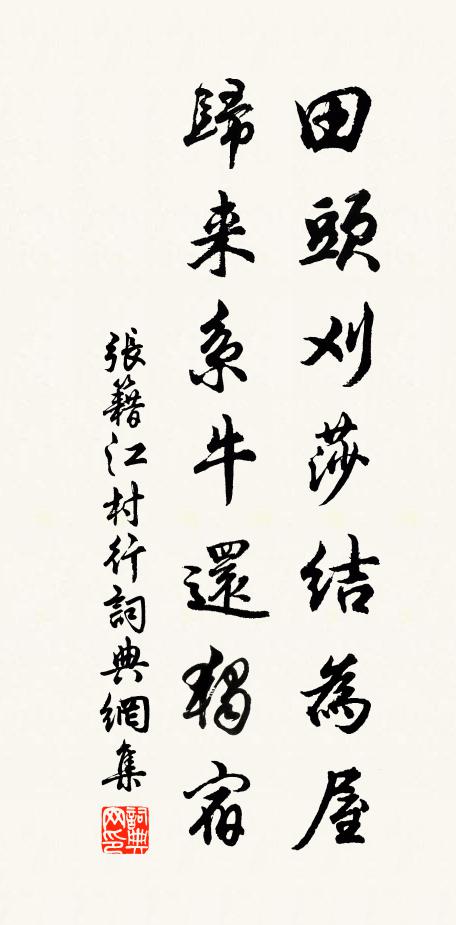 田頭刈莎結為屋
歸来系牛還獨宿
張籍江村行詞典網集
詞典网印